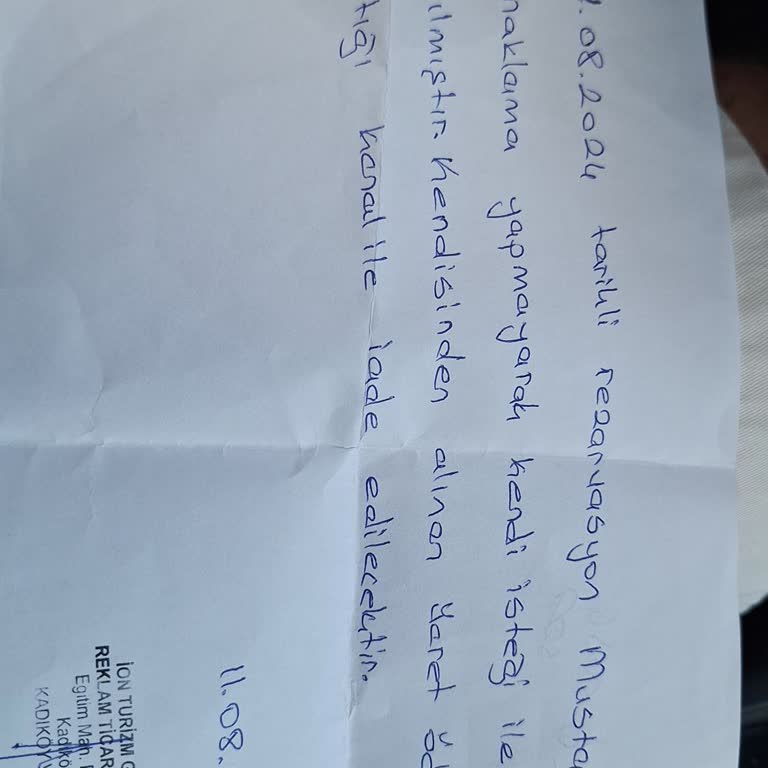 .08.2024 tarihli rezarvasyon Musta
naklama yapmayarak kendi isteği ile
ılmıştır. Kendisinden alınan ücret öd
tığı kanal ile iade edilecektir.
11.08.
İON TURİZM
REKLAM TİCAR
Eğitim Mah.
Kadıkö
KADIKÖY